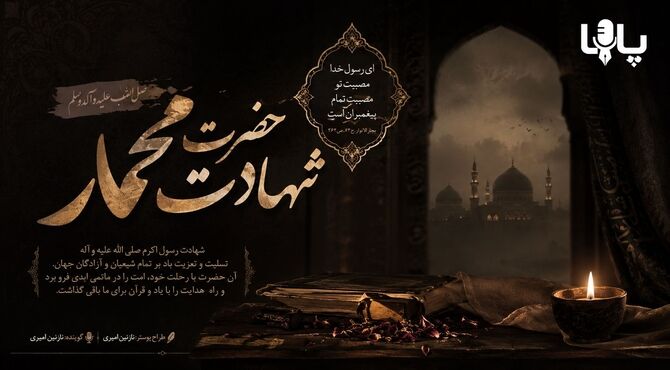 پاپا
ای رسول خدا
مصیبت تو
مصیبت تمام
پیغمبران است
صلی الله علیه و آله وسلم
شهادت حضرت محمد
شهادت رسول اکرم صلی الله علیه و آله
تسلیت و تعزیت باد بر تمام شیعیان و آزادگان جهان.
آن حضرت با رحلت خود، امت را در ماتمی ابدی فرو برد
و راه هدایت را با یاد و قرآن برای ما باقی گذاشت.
طراح پوستر: نازنین امیری | گوینده: نازنین امیری